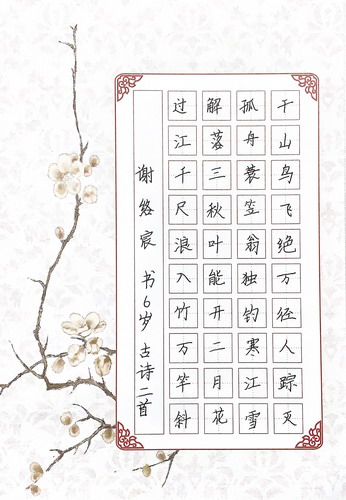 千山鸟飞绝万径人踪灭
孤舟蓑笠翁独钓寒江雪
解落三秋叶能开二月花
过江千尺浪入竹万竿斜
谢宸 书6岁 古诗二首